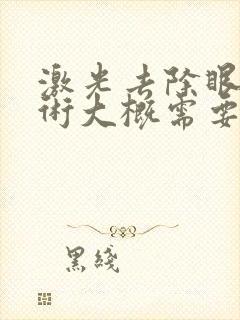 激光去除眼
术大概需要
黑线